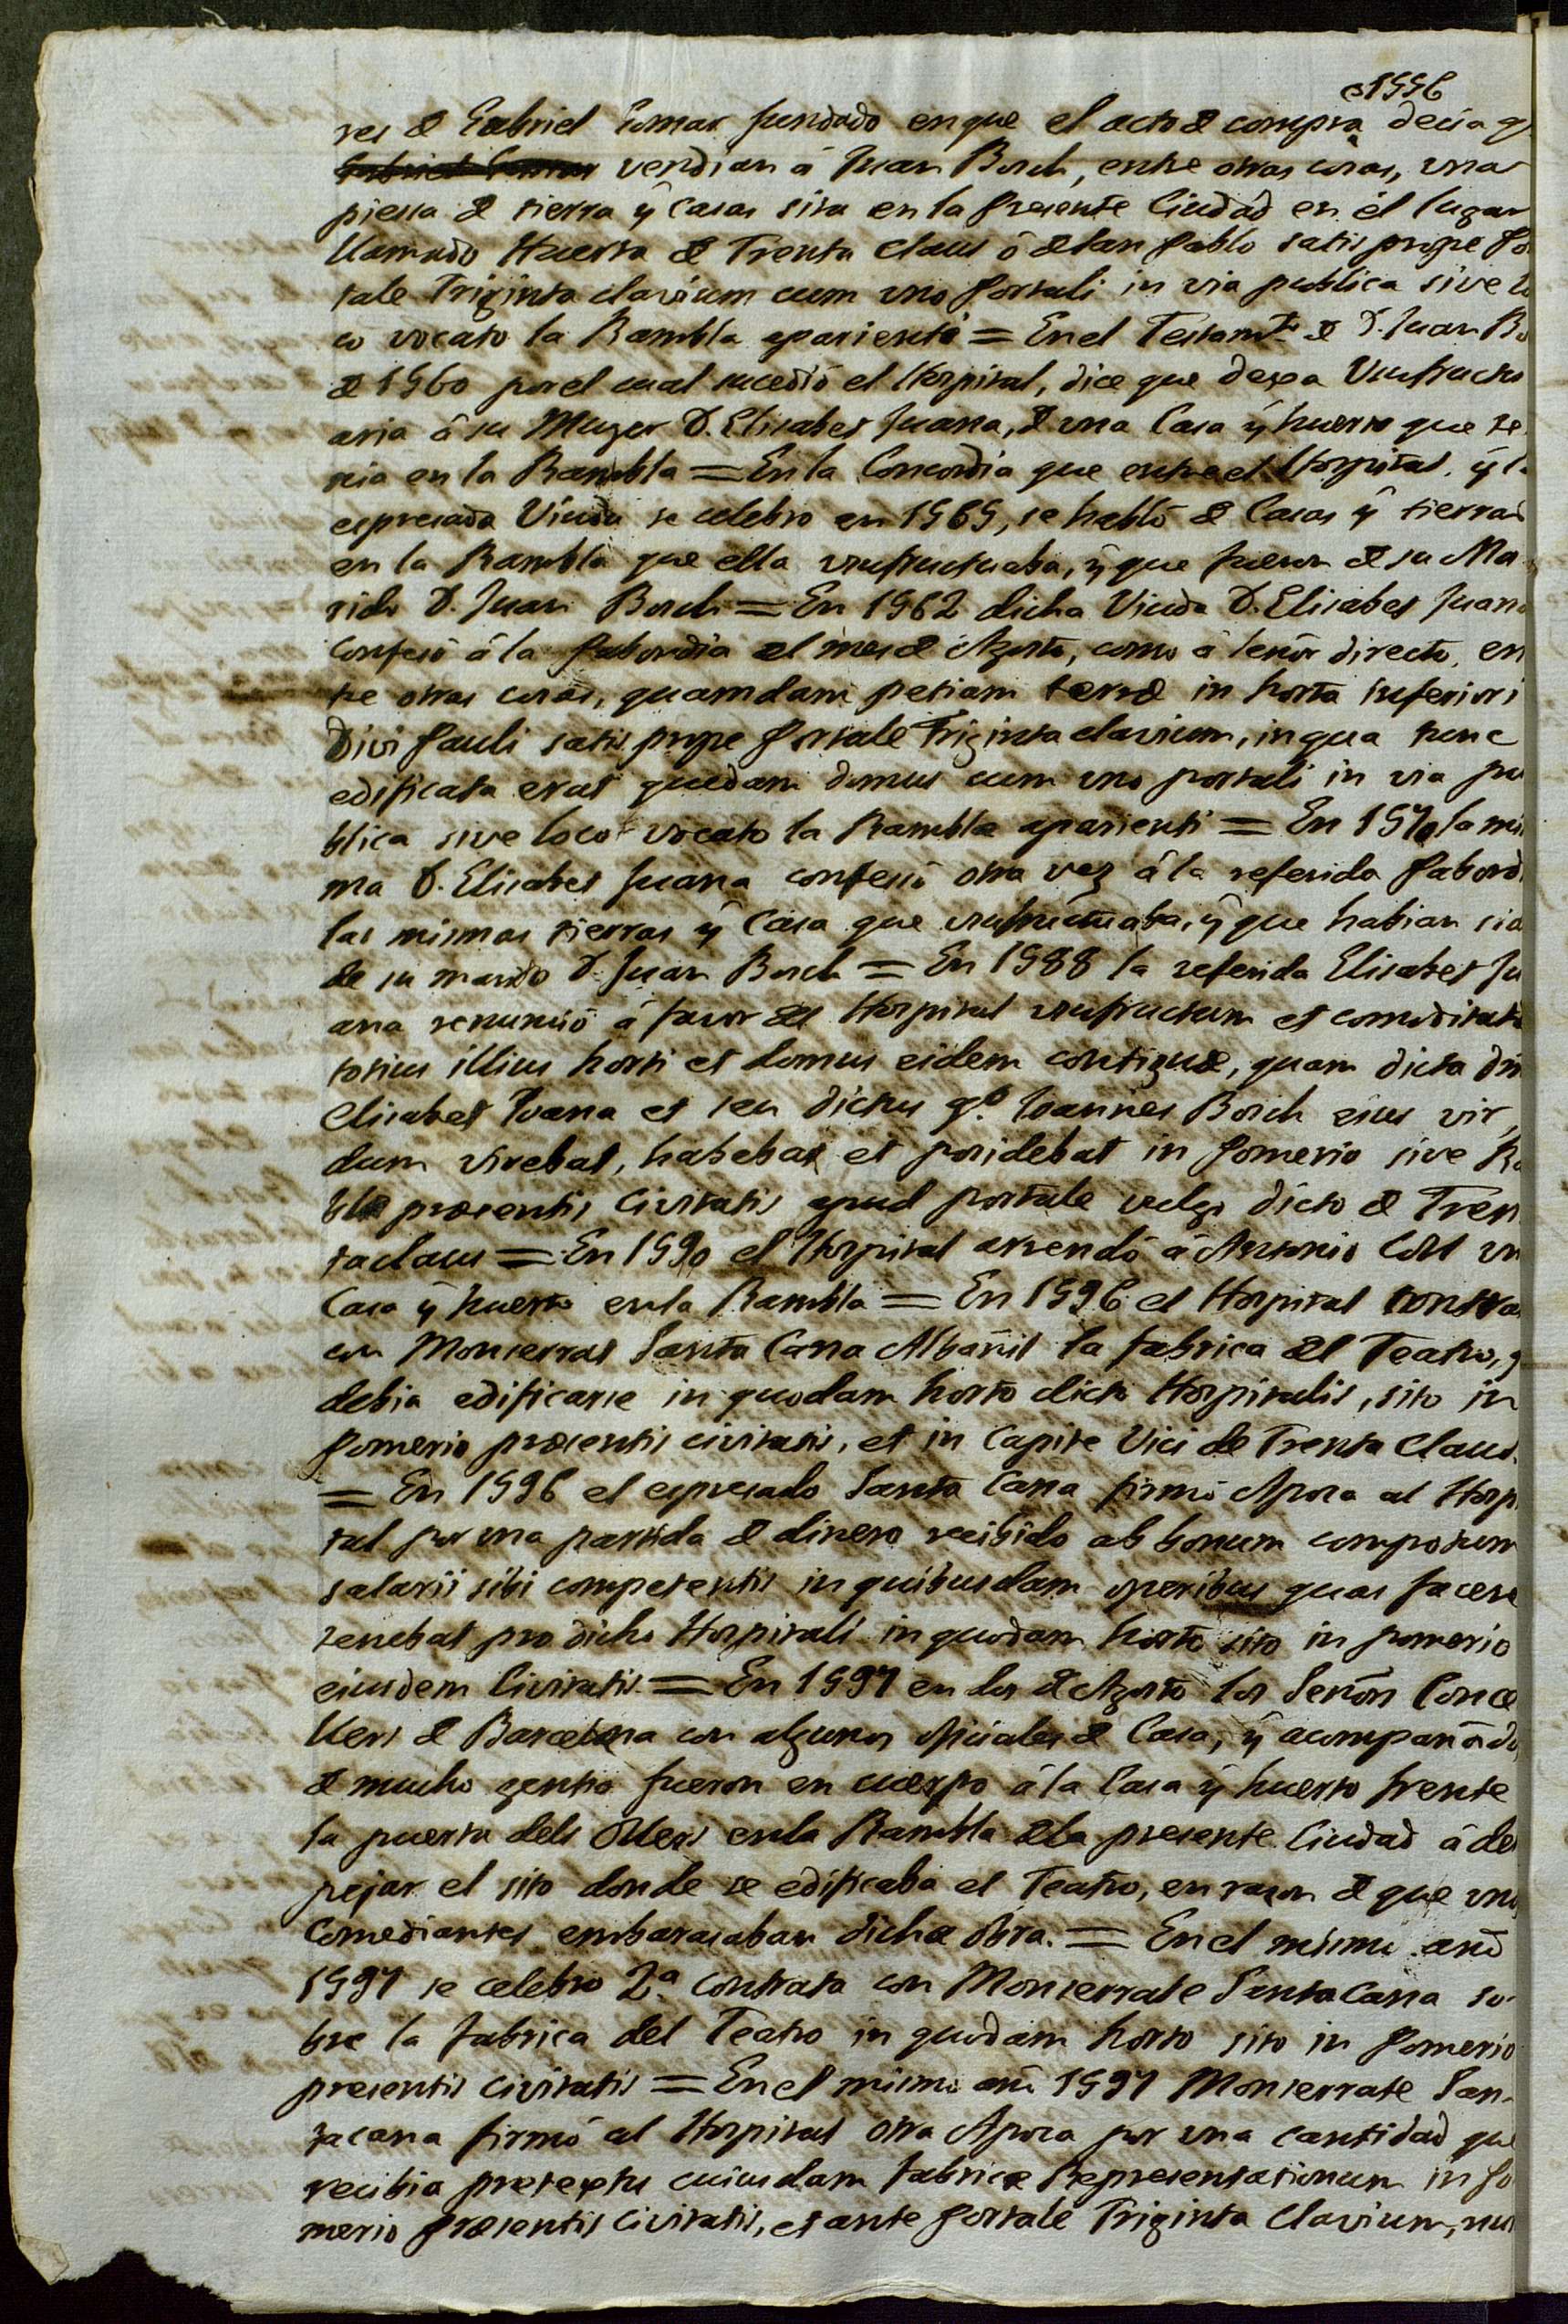 e 1556
res de Gabriel Comas fundado en que el acto de compra decia q
Gabriel Comas vendian á Juan Bosch, entre otras cosas, una
piessa de tierra ÿ Casas sita en la presente Ciudad en el lugar
llamado Huerta de Trenta claus ó de San Pablo satis prope Po
tale Triginta clavium cum uno portali in via publica sive lo
co vocato la Rambla aparienti = En el Testamto de D. Juan Bo
de 1560 por el cual sucedió el Hospital, dice que dexa Usufructu
aria á su Muger D. Elisabet Juana, de una Casa ÿ huerto que te
nia en la Rambla = En la Concordia que entre el Hospital, ÿ l
espresada Viuda se celebro en 1565, se habló de Casas ÿ tierras
en la Rambla que ella usufructuaba, ÿ que fueron de su Ma
rido D. Juan Bosch = En 1562 dicha Viuda D. Elisabet Juana
confesó á la Pabordia del mes de Agosto, como á señor directo, en
tre otras cosas, quamdam petiam terræ in horta inferiori
Divi Pauli satis prope Portale Triginta clavium, in qua tunc
edificata erat quædam domus cum uno portali in via pu
blica sive loco vocato la Rambla aparienti = En 1570 la mis
ma D. Elisabet Juana confesó otra vez á la referida Pabord
las mismas tierras ÿ Casa que usufructuaba, ÿ que habian sid
de su marido D. Juan Bosch = En 1588 la referida Elisabet Ju
ana renunció á favor del Hospital usufructum et comoditat
totius illius horti et domus eidem contiguæ, quam dicta dn
Elisabet Joana et seu dictus qo. Joannes Bosch eius vir,
dum vivebat, habebat et posidebat in Pomerio sive Ra
bla præsentis Civitatis apud portale vulgo dicto de Tren
taclaus = En 1590 el Hospital arrendó á Antonio Coll un
Casa ÿ huerto en la Rambla = En 1596 el Hospital contra
con Monserrat Santa Cana Albañil la fabrica del Teatro, q
debia edificarse in quodam horto dicti Hospitalis, sito in
Pomerio præsentis civitatis, et in Capite Vici de Trenta Claus.
= En 1596 el espresado Santa Cana firmó Apoca al Hospi
tal por una partida de dinero recibido ab bonum compotum
salarii sibi competentis in quibusdam operibus quas facere
tenebat pro dicho Hospitali in quodam horto sito in pomerio
eiusdem Civitatis = En 1597 en dos de Agosto los Señors Conce
llers de Barcelona con algunos oficiales de Casa, ÿ acompañados
de mucho gentio fueron en cuerpo á la Casa ÿ huerto frente
la puerta dels Ollers en la Rambla de la presente Ciudad á des
pejar el sito donde se edificaba el Teatro, en rason de que unos
Comediantes embarasaban dicha obra. = En el mismo año
1597 se celebro 2a. Contrata con Monserrate Santa Cana so-
bre la fabrica del Teatro in quodam horto sito in Pomerio
presentis civitatis = En el mismo año 1597 Monserrate San-
tacana firmó al Hospital otra Apoca por una cantidad que
recibia pretextu cuiusdam fabricæ Representationum in Po
merio præsentis civitatis, et ante Portale Triginta Clavium, nun